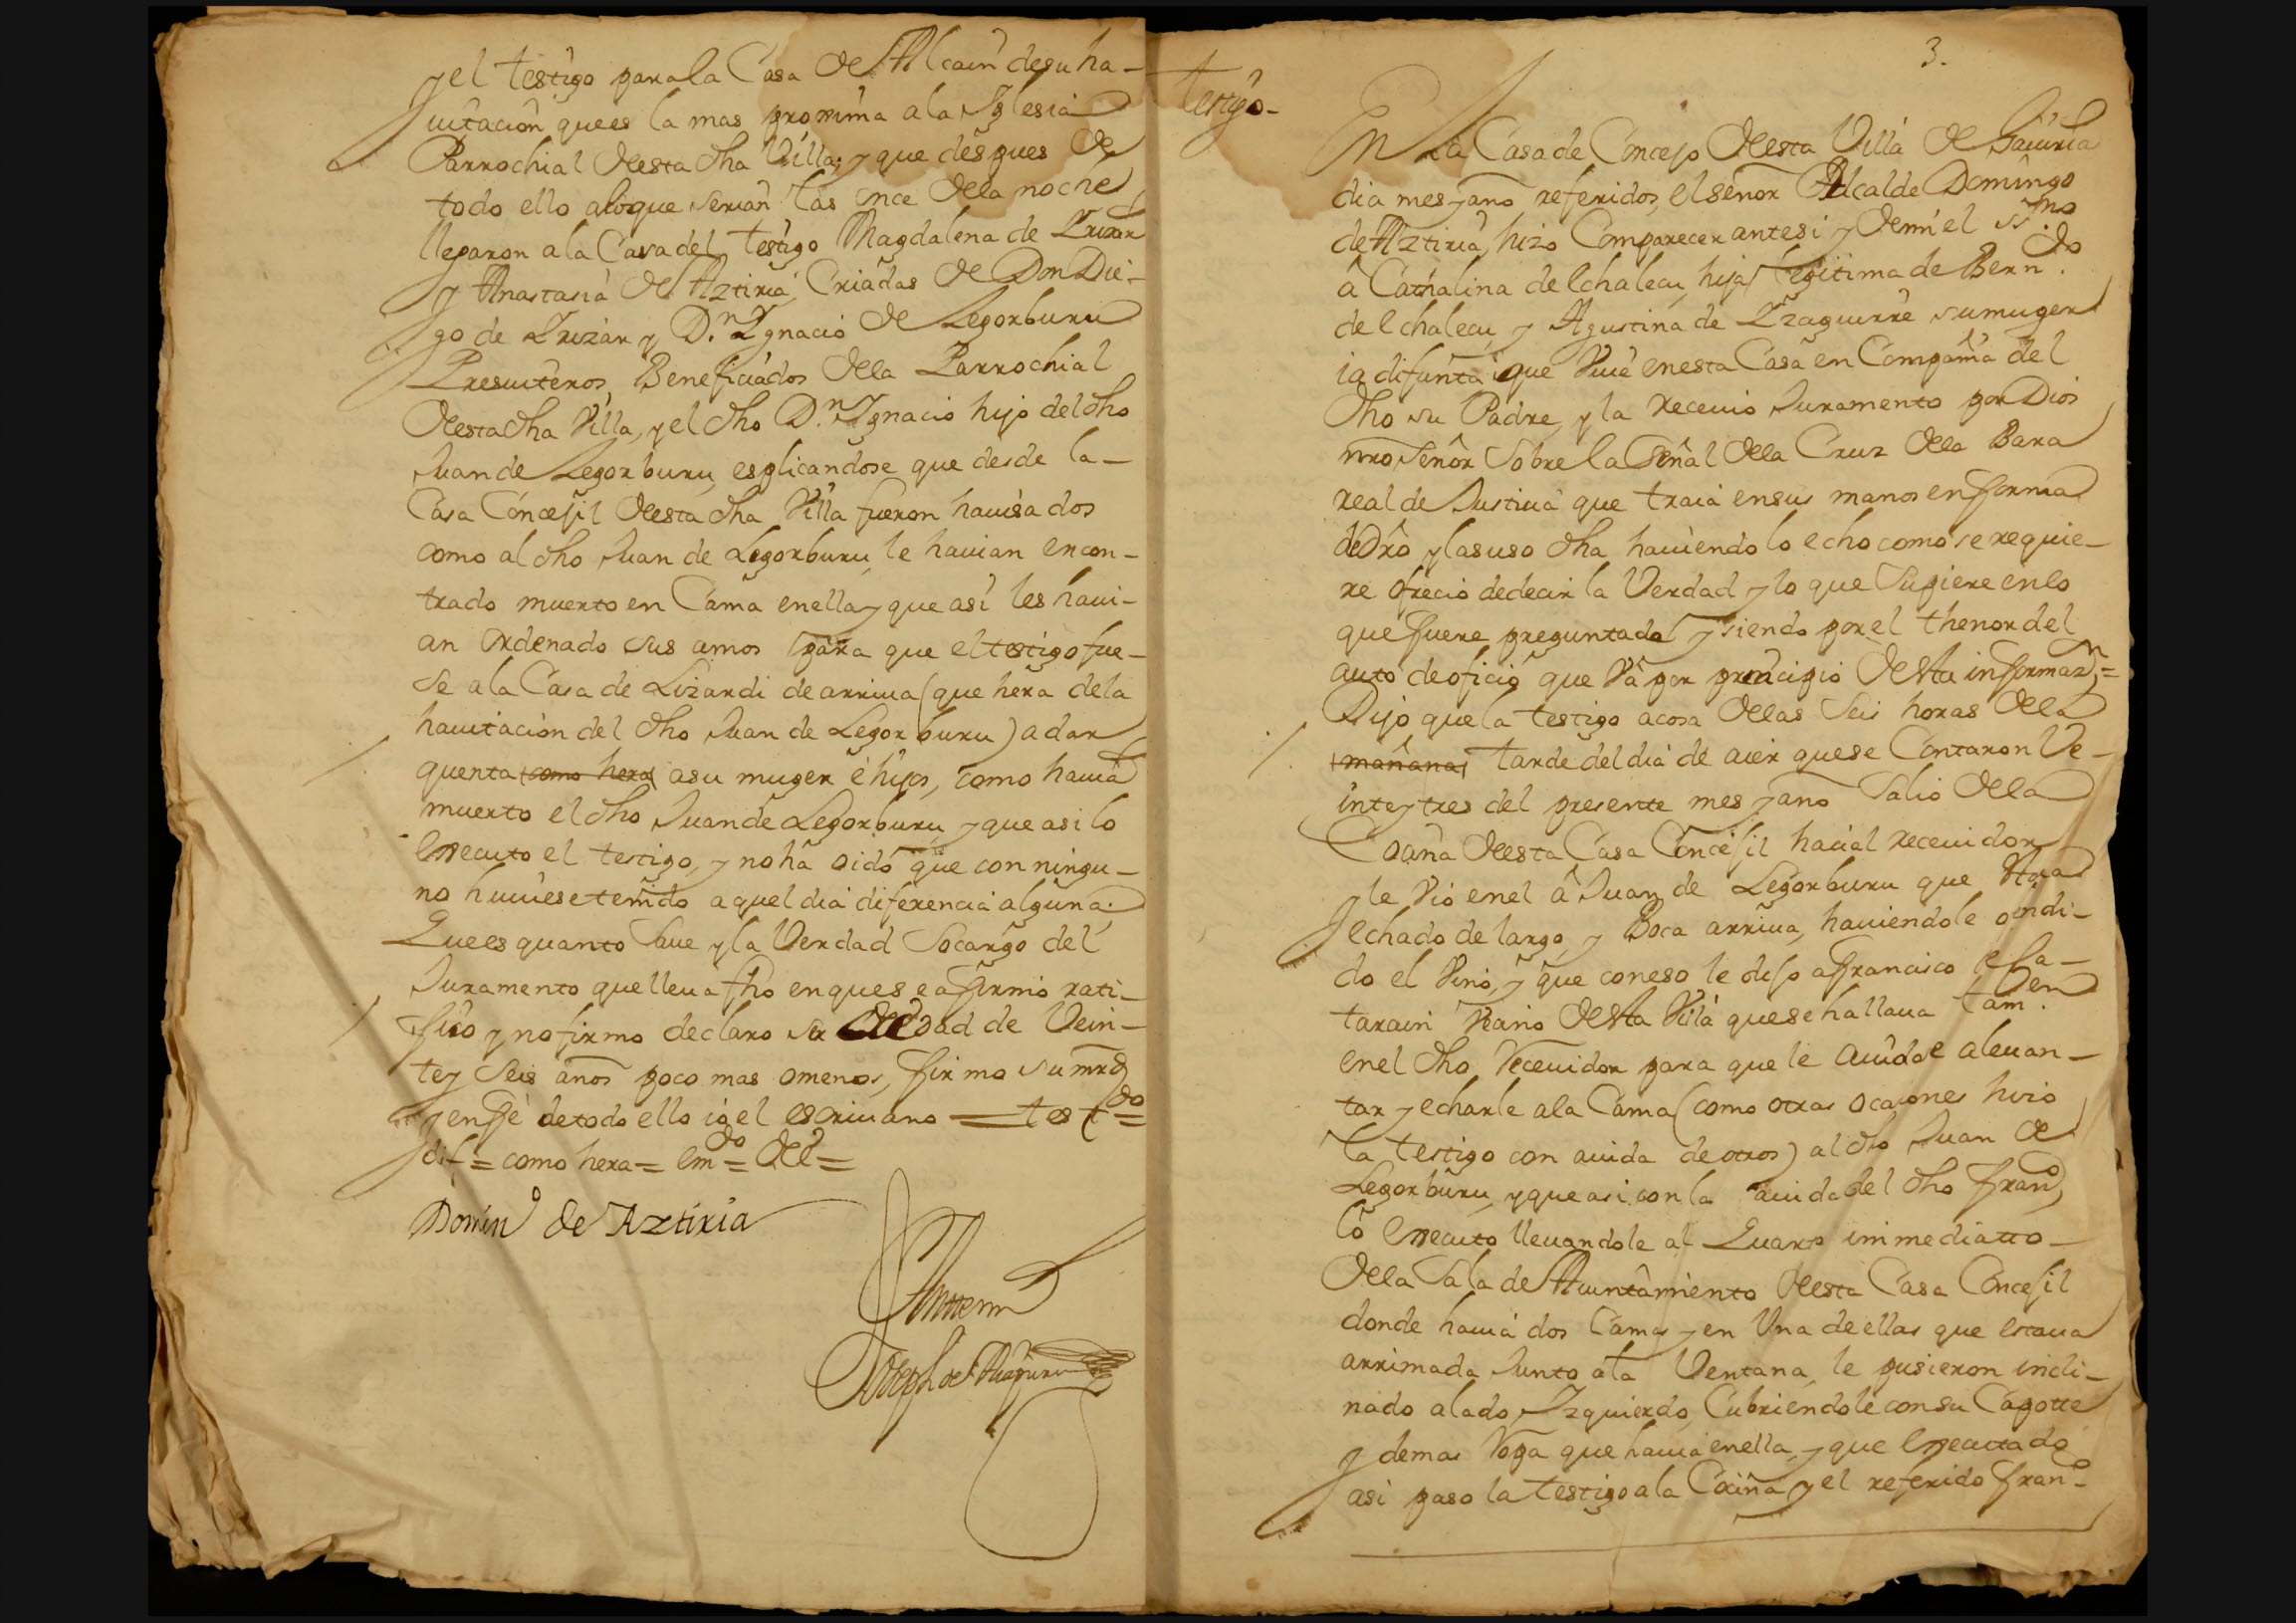 y el testigo para la Casa de Alcain de su ha-
uitacion que es la mas proxima a la Iglesia
Parrochial desta dha Villa, y que despues de
todo ello a lo que serian las once de la noche
llegaron a la Casa del testigo Magdalena de Irizar
y Anastasia de Aztiria, Criadas de Don Die-
go de Irizar y D.n Ignacio de Legorburu
Presuiteros Beneficiados de la Parrochial
desta dha Villa, y el dho D.n Ignacio hijo del dho
Juan de Legorburu, esplicandose que desde la-
Casa Concejil desta dha Villa fueron hauisados
como al dho Juan de Legorburu, le hauian encon-
trado muerto en Cama en ella y que asi les haui-
an ordenado sus amos para que el testigo fue-
se a la Casa de Lizardi de arriua (que hera de la
hauitacion del dho Juan de Legorburu) a dar
quenta como hera a su muger è hijos, como hauia
muerto el dho Juan de Legorburu, y que asi lo
executo el testigo, y no ha oido que con ningu-
no huuiese tenido aquel dia diferencia alguna.
Que es quanto saue y la Verdad so cargo del
Juramento que lleua fho en que se afirmo rati-
fico y no firmo declaro ser de edad de Vein-
te y seis años poco mas o menos, firmo su mrd
y en fè de todo ello io el escriuano = test.do =
dif = como hera = em.do = de =
Domin.o de Aztiria
Ante mi
Joseph de
testigo-
3.
En la Casa de Concejo desta Villa de Gauiria
dia mes y año referidos, el señor Alcalde Domingo
de Aztiria, hizo Comparecer ante si y de mi el ss.no
â Cathalina de Echalecu, hija legitima de Bern.do
de Echalecu, y Agustina de Izaguirre su muger
ia difunta que Viue en esta Casa en Compañia del
dho su Padre, y la receuio Juramento por Dios
nro Señor sobre la señal de la Cruz de la Bara
real de Justicia que traia en sus manos en forma
de dro y la suso dha hauiendolo echo como se requie-
re ofrecio de decir la Verdad y lo que supiere en lo
que fuere preguntada y siendo por el thenor del
auto de oficio que Và por principio desta informaz.n =
Dijo que la testigo a cosa de las seis horas de la
mañana tarde del dia de aier que se Contaron Ve-
inte y tres del presente mes y año salio de la
Cocina desta Casa Concejil hacia el receuidor
y le Vio en el â Juan de Legorburu que staua
echado de largo, y Boca arriua, hauiendole o indi-
do el Vino, y que con eso le dijo a Francisco
Vecino desta Villa que se hallaua tam.en
en el dho receuidor para que le auidase a leuan-
tar y echarle a la Cama (como otras ocasiones hizo
la testigo con auida de otros) al dho Juan de
Legorburu, y que asi con la auida del dho Fran.co
lo executo lleuandole al Quarto immediatto-
de la Sala de Auuntamiento desta Casa Concejil
donde hauia dos Camas y en Una de ellas que estaua
arrimada Junto a la Ventana, le pusieron incli-
nado a lado Izquierdo, Cubriendole con su Capotte
y demas ropa que hauia en ella, y que executado
asi paso la testigo a la Cocina y el referido Fran.co